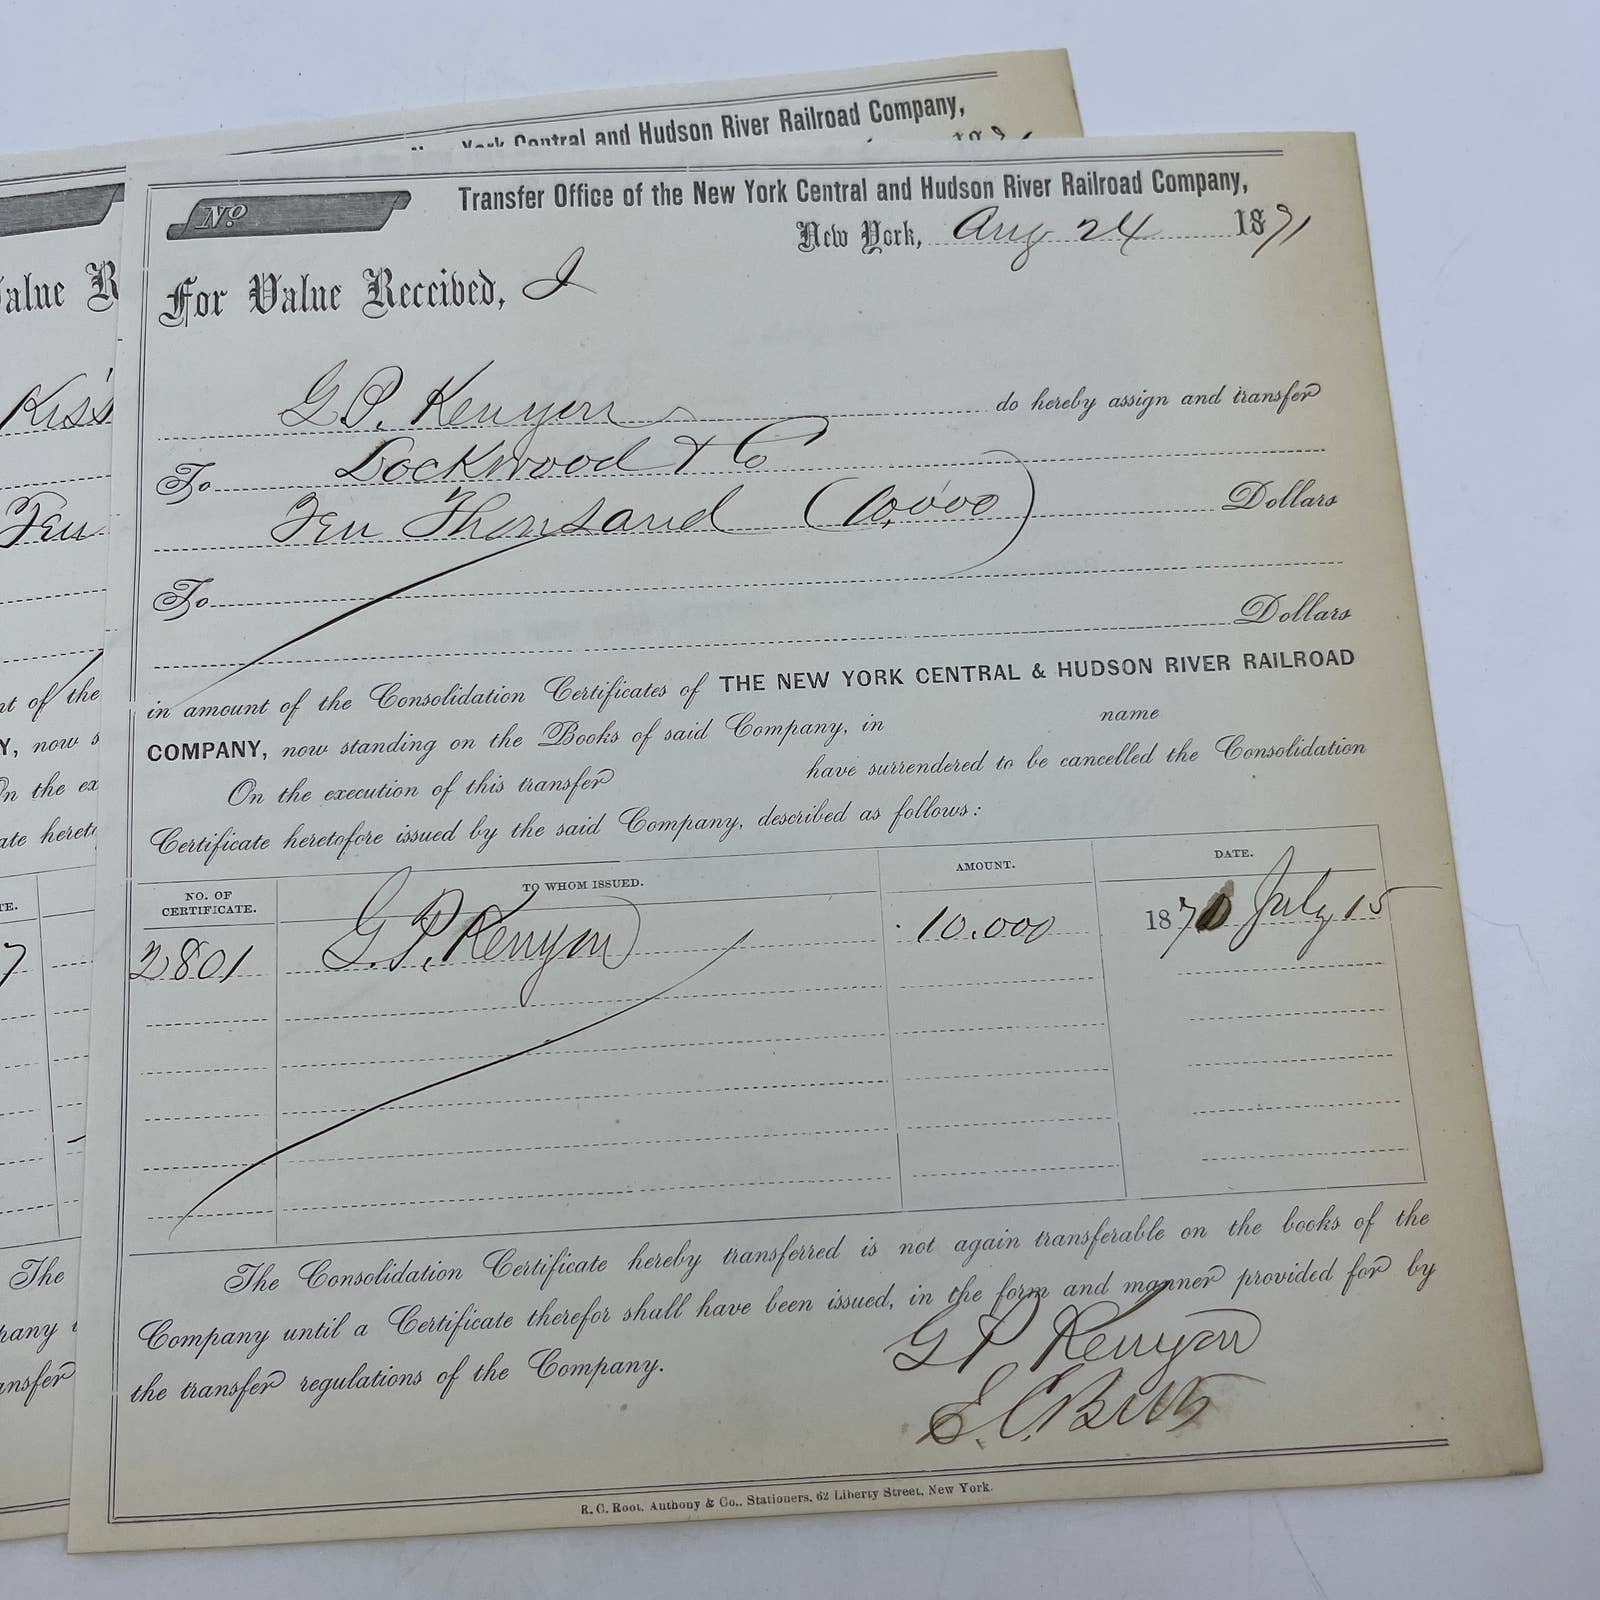 York Central and Hudson River Railroad Company,
No
Transfer Office of the New York Central and Hudson River Railroad Company,
New York, Aug 24 1871
For Value Received, I
G P. Kenyon do hereby assign and transfer
To Lockwood & Co
Ten Thousand (10,000) Dollars
To
Dollars
in amount of the Consolidation Certificates of THE NEW YORK CENTRAL & HUDSON RIVER RAILROAD
COMPANY, now standing on the Books of said Company, in name
On the execution of this transfer have surrendered to be cancelled the Consolidation
Certificate heretofore issued by the said Company, described as follows:
NO. OF CERTIFICATE. TO WHOM ISSUED. AMOUNT. DATE.
2801 G. P. Kenyon 10.000 1870 July 15
The Consolidation Certificate hereby transferred is not again transferable on the books of the
Company until a Certificate therefor shall have been issued, in the form and manner provided for by
the transfer regulations of the Company.
G P Kenyon
E. C.
R. C. Root, Anthony & Co., Stationers, 62 Liberty Street, New York.
alue R
Kiss
Ten
nt of the
Y, now s
On the ex
ate hereto
TE.
7
The
pany
ansfer